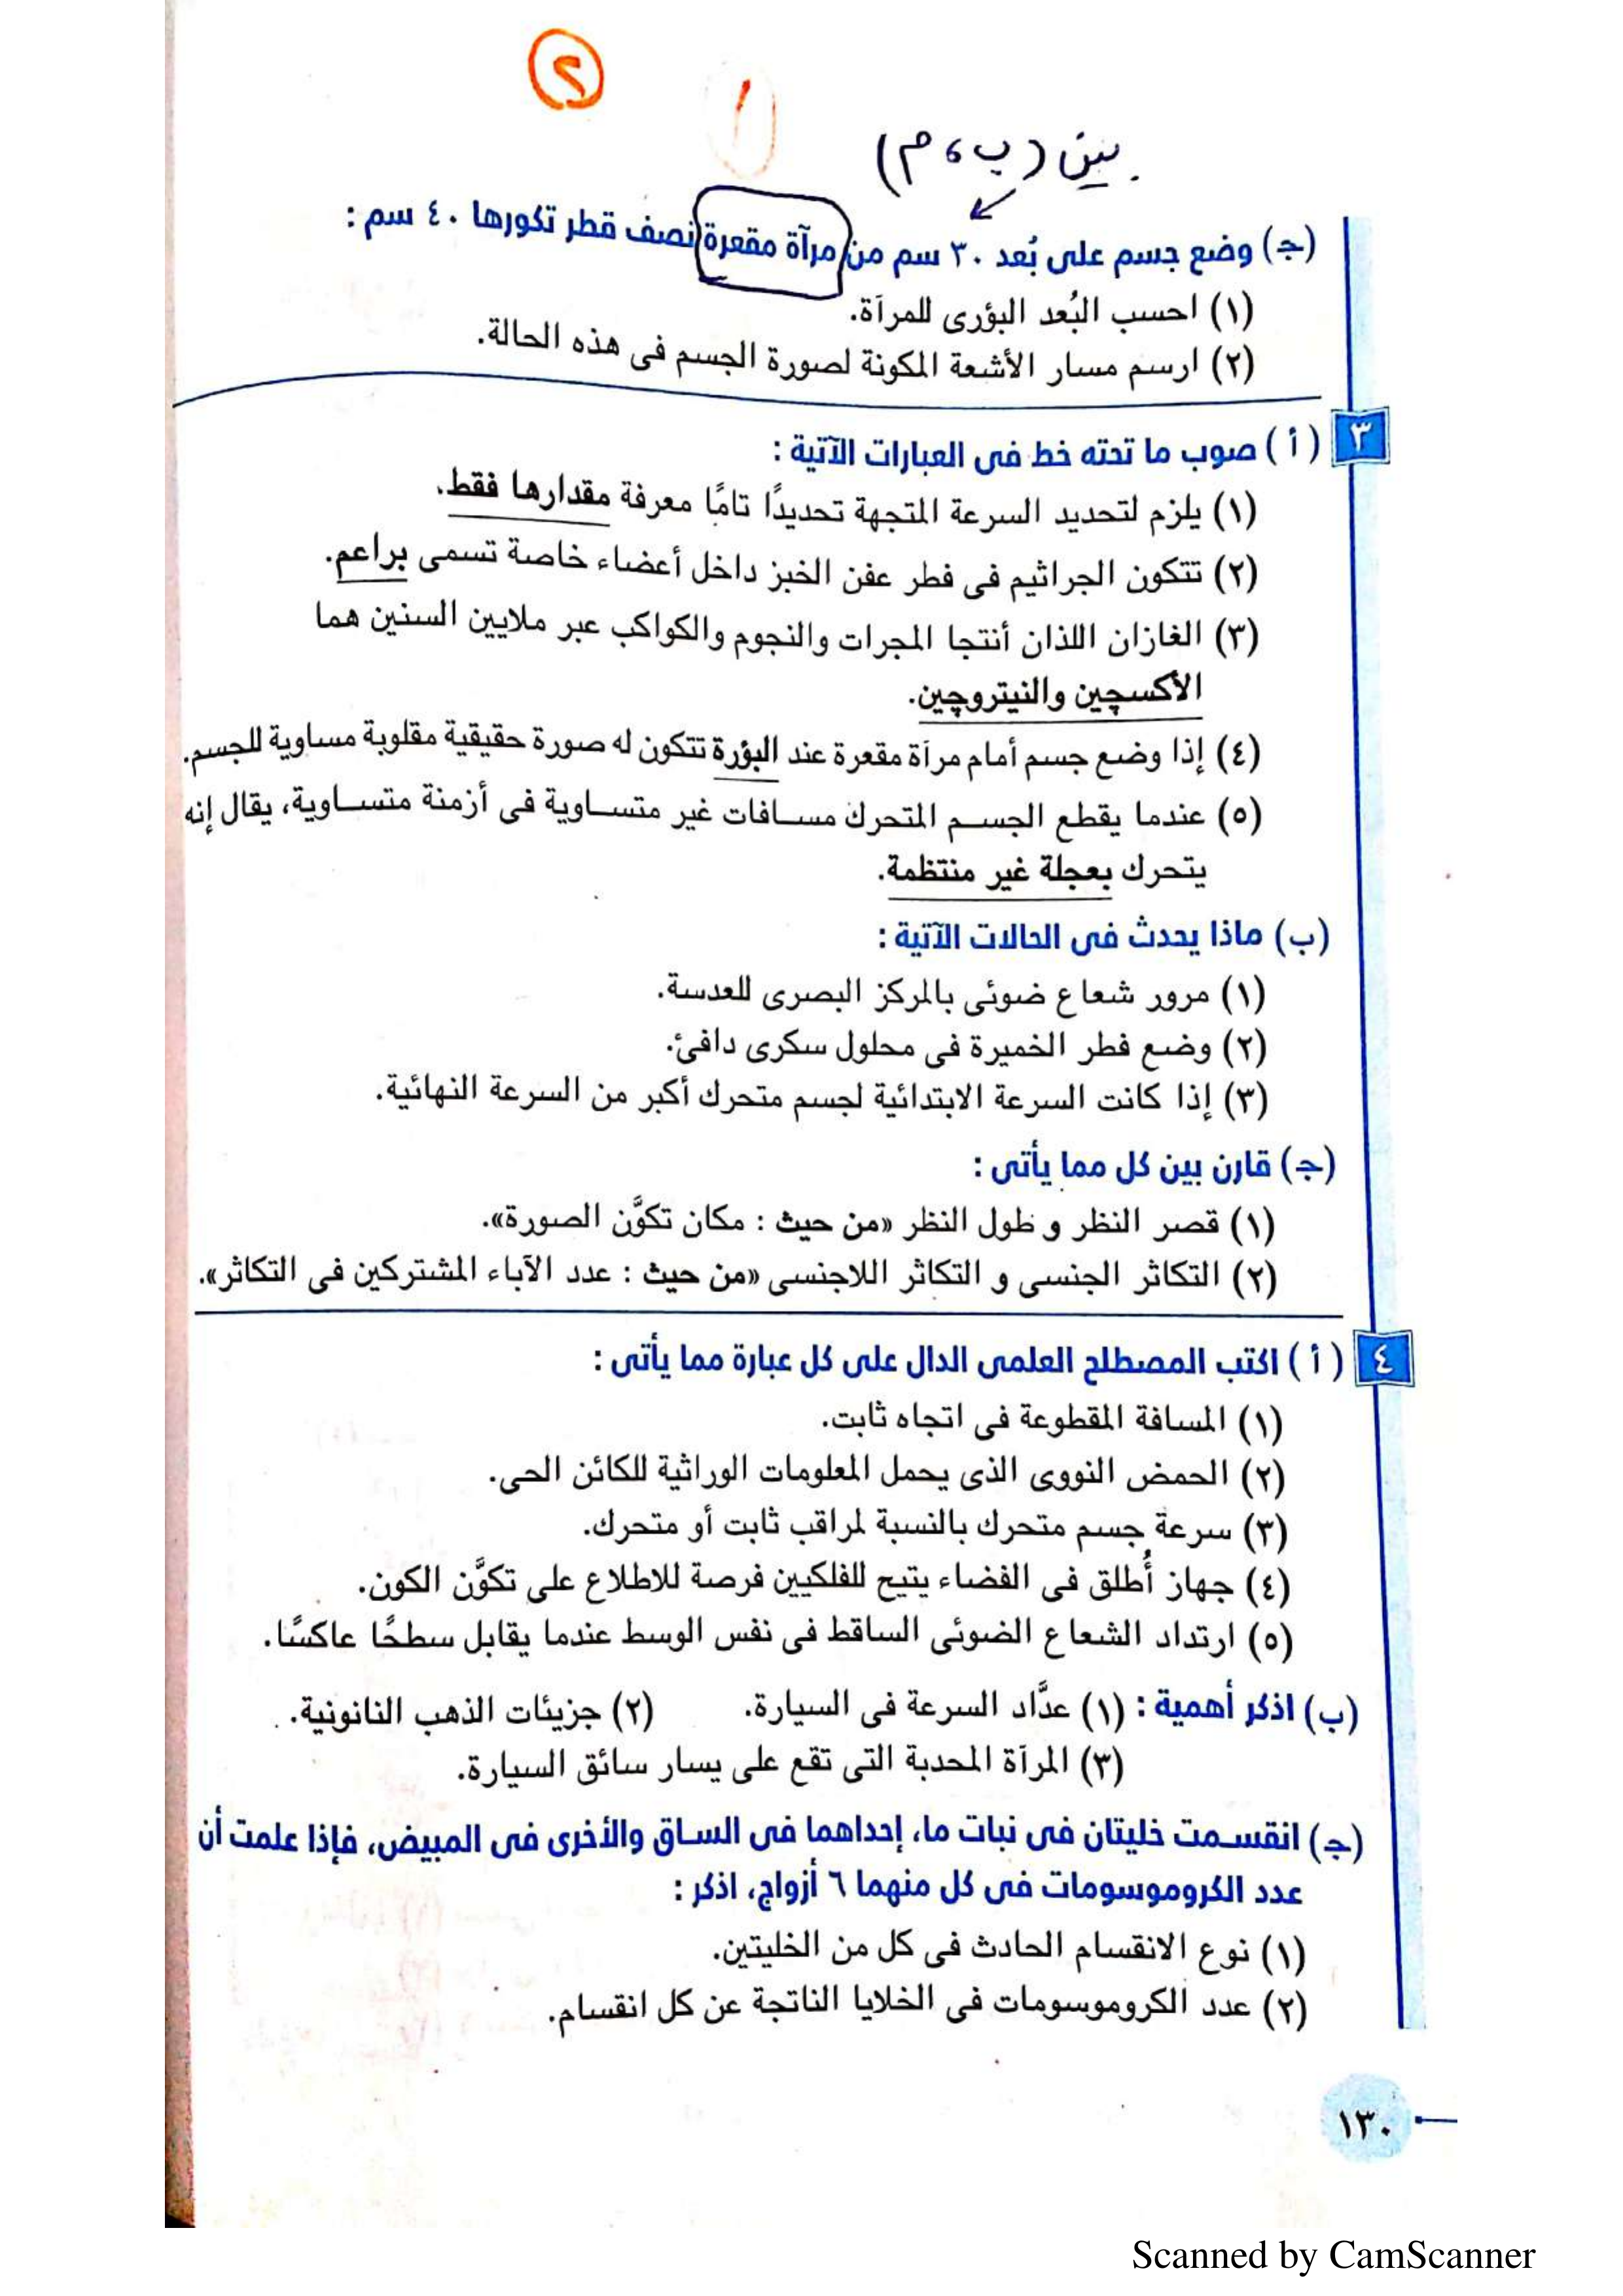 ٢
١
بين (ب ، م)
(ج) وضع جسم على بُعد ٣٠ سم من مرآة مقعرة نصف قطر تكورها ٤٠ سم :
(١) احسب البُعد البؤرى للمرآة.
(٢) ارسم مسار الأشعة المكونة لصورة الجسم فى هذه الحالة.
٣ (أ) صوب ما تحته خط فى العبارات الآتية :
(١) يلزم لتحديد السرعة المتجهة تحديدًا تامًا معرفة مقدارها فقط.
(٢) تتكون الجراثيم فى فطر عفن الخبز داخل أعضاء خاصة تسمى براعم.
(٣) الغازان اللذان أنتجا المجرات والنجوم والكواكب عبر ملايين السنين هما
الأكسچين والنيتروچين.
(٤) إذا وضع جسم أمام مرآة مقعرة عند البؤرة تتكون له صورة حقيقية مقلوبة مساوية للجسم.
(٥) عندما يقطع الجسم المتحرك مسافات غير متساوية فى أزمنة متساوية، يقال إنه
يتحرك بعجلة غير منتظمة.
(ب) ماذا يحدث فى الحالات الآتية :
(١) مرور شعاع ضوئى بالمركز البصرى للعدسة.
(٢) وضع فطر الخميرة فى محلول سكرى دافئ.
(٣) إذا كانت السرعة الابتدائية لجسم متحرك أكبر من السرعة النهائية.
(ج) قارن بين كل مما يأتى :
(١) قصر النظر و طول النظر «من حيث : مكان تكوَّن الصورة».
(٢) التكاثر الجنسى و التكاثر اللاجنسى «من حيث : عدد الآباء المشتركين فى التكاثر».
٤ (أ) اكتب المصطلح العلمى الدال على كل عبارة مما يأتى :
(١) المسافة المقطوعة فى اتجاه ثابت.
(٢) الحمض النووى الذى يحمل المعلومات الوراثية للكائن الحى.
(٣) سرعة جسم متحرك بالنسبة لمراقب ثابت أو متحرك.
(٤) جهاز أُطلق فى الفضاء يتيح للفلكيين فرصة للاطلاع على تكوَّن الكون.
(٥) ارتداد الشعاع الضوئى الساقط فى نفس الوسط عندما يقابل سطحًا عاكسًا.
(ب) اذكر أهمية : (١) عدَّاد السرعة فى السيارة. (٢) جزيئات الذهب النانونية.
(٣) المرآة المحدبة التى تقع على يسار سائق السيارة.
(ج) انقسمت خليتان فى نبات ما، إحداهما فى الساق والأخرى فى المبيض، فإذا علمت أن
عدد الكروموسومات فى كل منهما ٦ أزواج، اذكر :
(١) نوع الانقسام الحادث فى كل من الخليتين.
(٢) عدد الكروموسومات فى الخلايا الناتجة عن كل انقسام.
١٣٠
Scanned by CamScanner